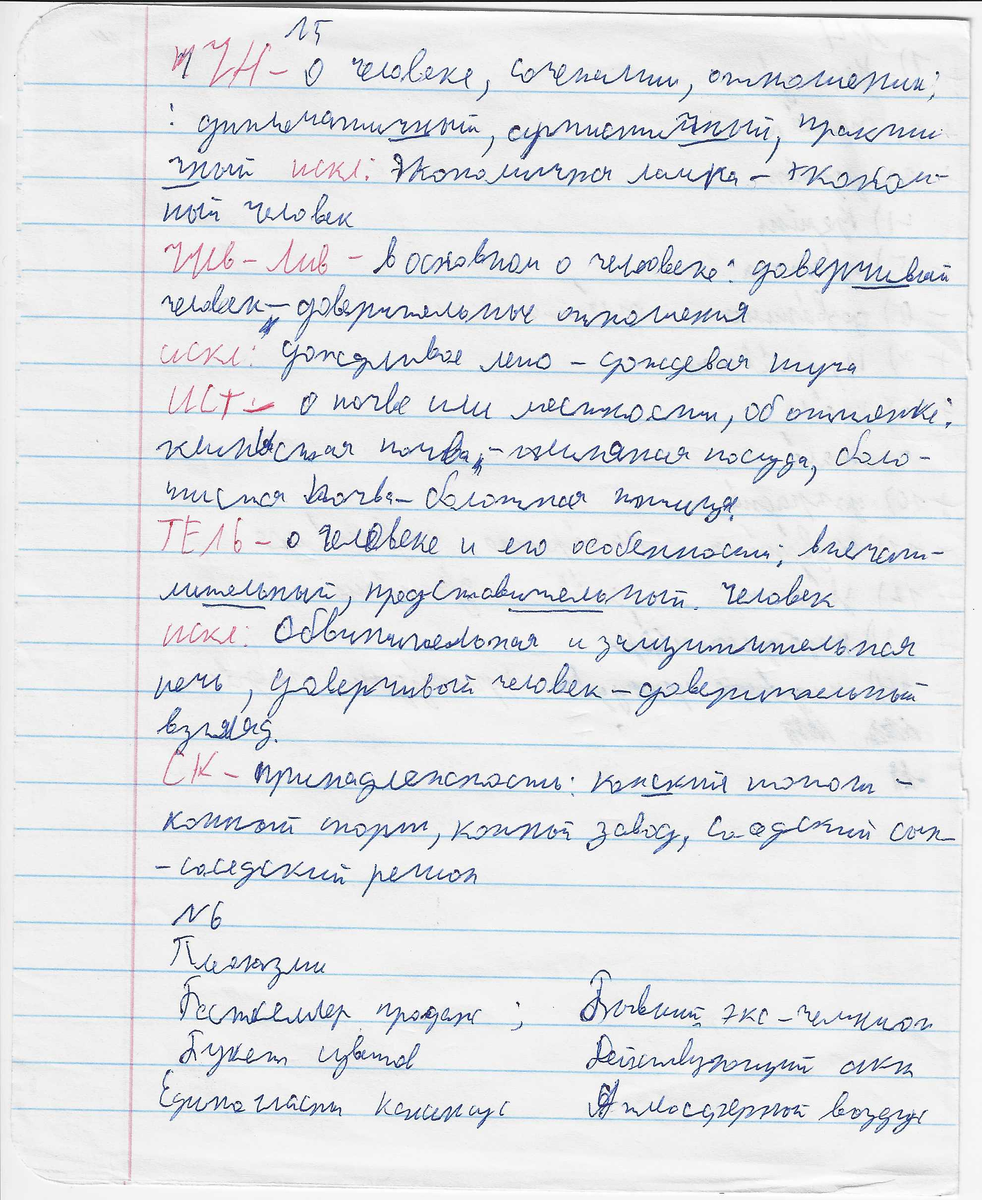 №5
ЧН – о человеке, сочетании, отношении;
: дипломатичный, артистичный, практи-
чный искл: экономична лампа – эконом-
ный человек
ЧИВ – ЛИВ – в основном о человеке: доверчивый
человек – доверительные отношения
искл: дождливое лето – дождевая туча
ИСТ – о почве или местности, об оттенке:
глинистая почва, – глиняная посуда, боло-
тистая почва – болотная птица.
ТЕЛЬ – о человеке и его особенности; впечат-
лительный, представительный. человек
искл: Обвинительная и защитительная
речь, доверчивый человек – доверительный
взгляд.
СК – принадлежность: конский топот –
конный спорт, конный завод, соседский сын
– соседский регион
№6
Плеоназмы
Бестселлер продаж ; Бывший экс-чемпион
Букет цветов Действующий акт
Единогласный консенсус Атмосферный воздух